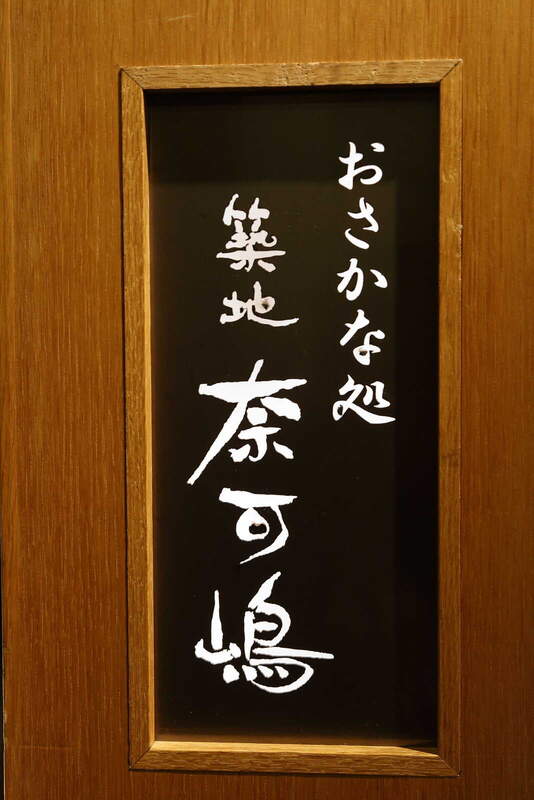 おさかな処
築地 奈可嶋